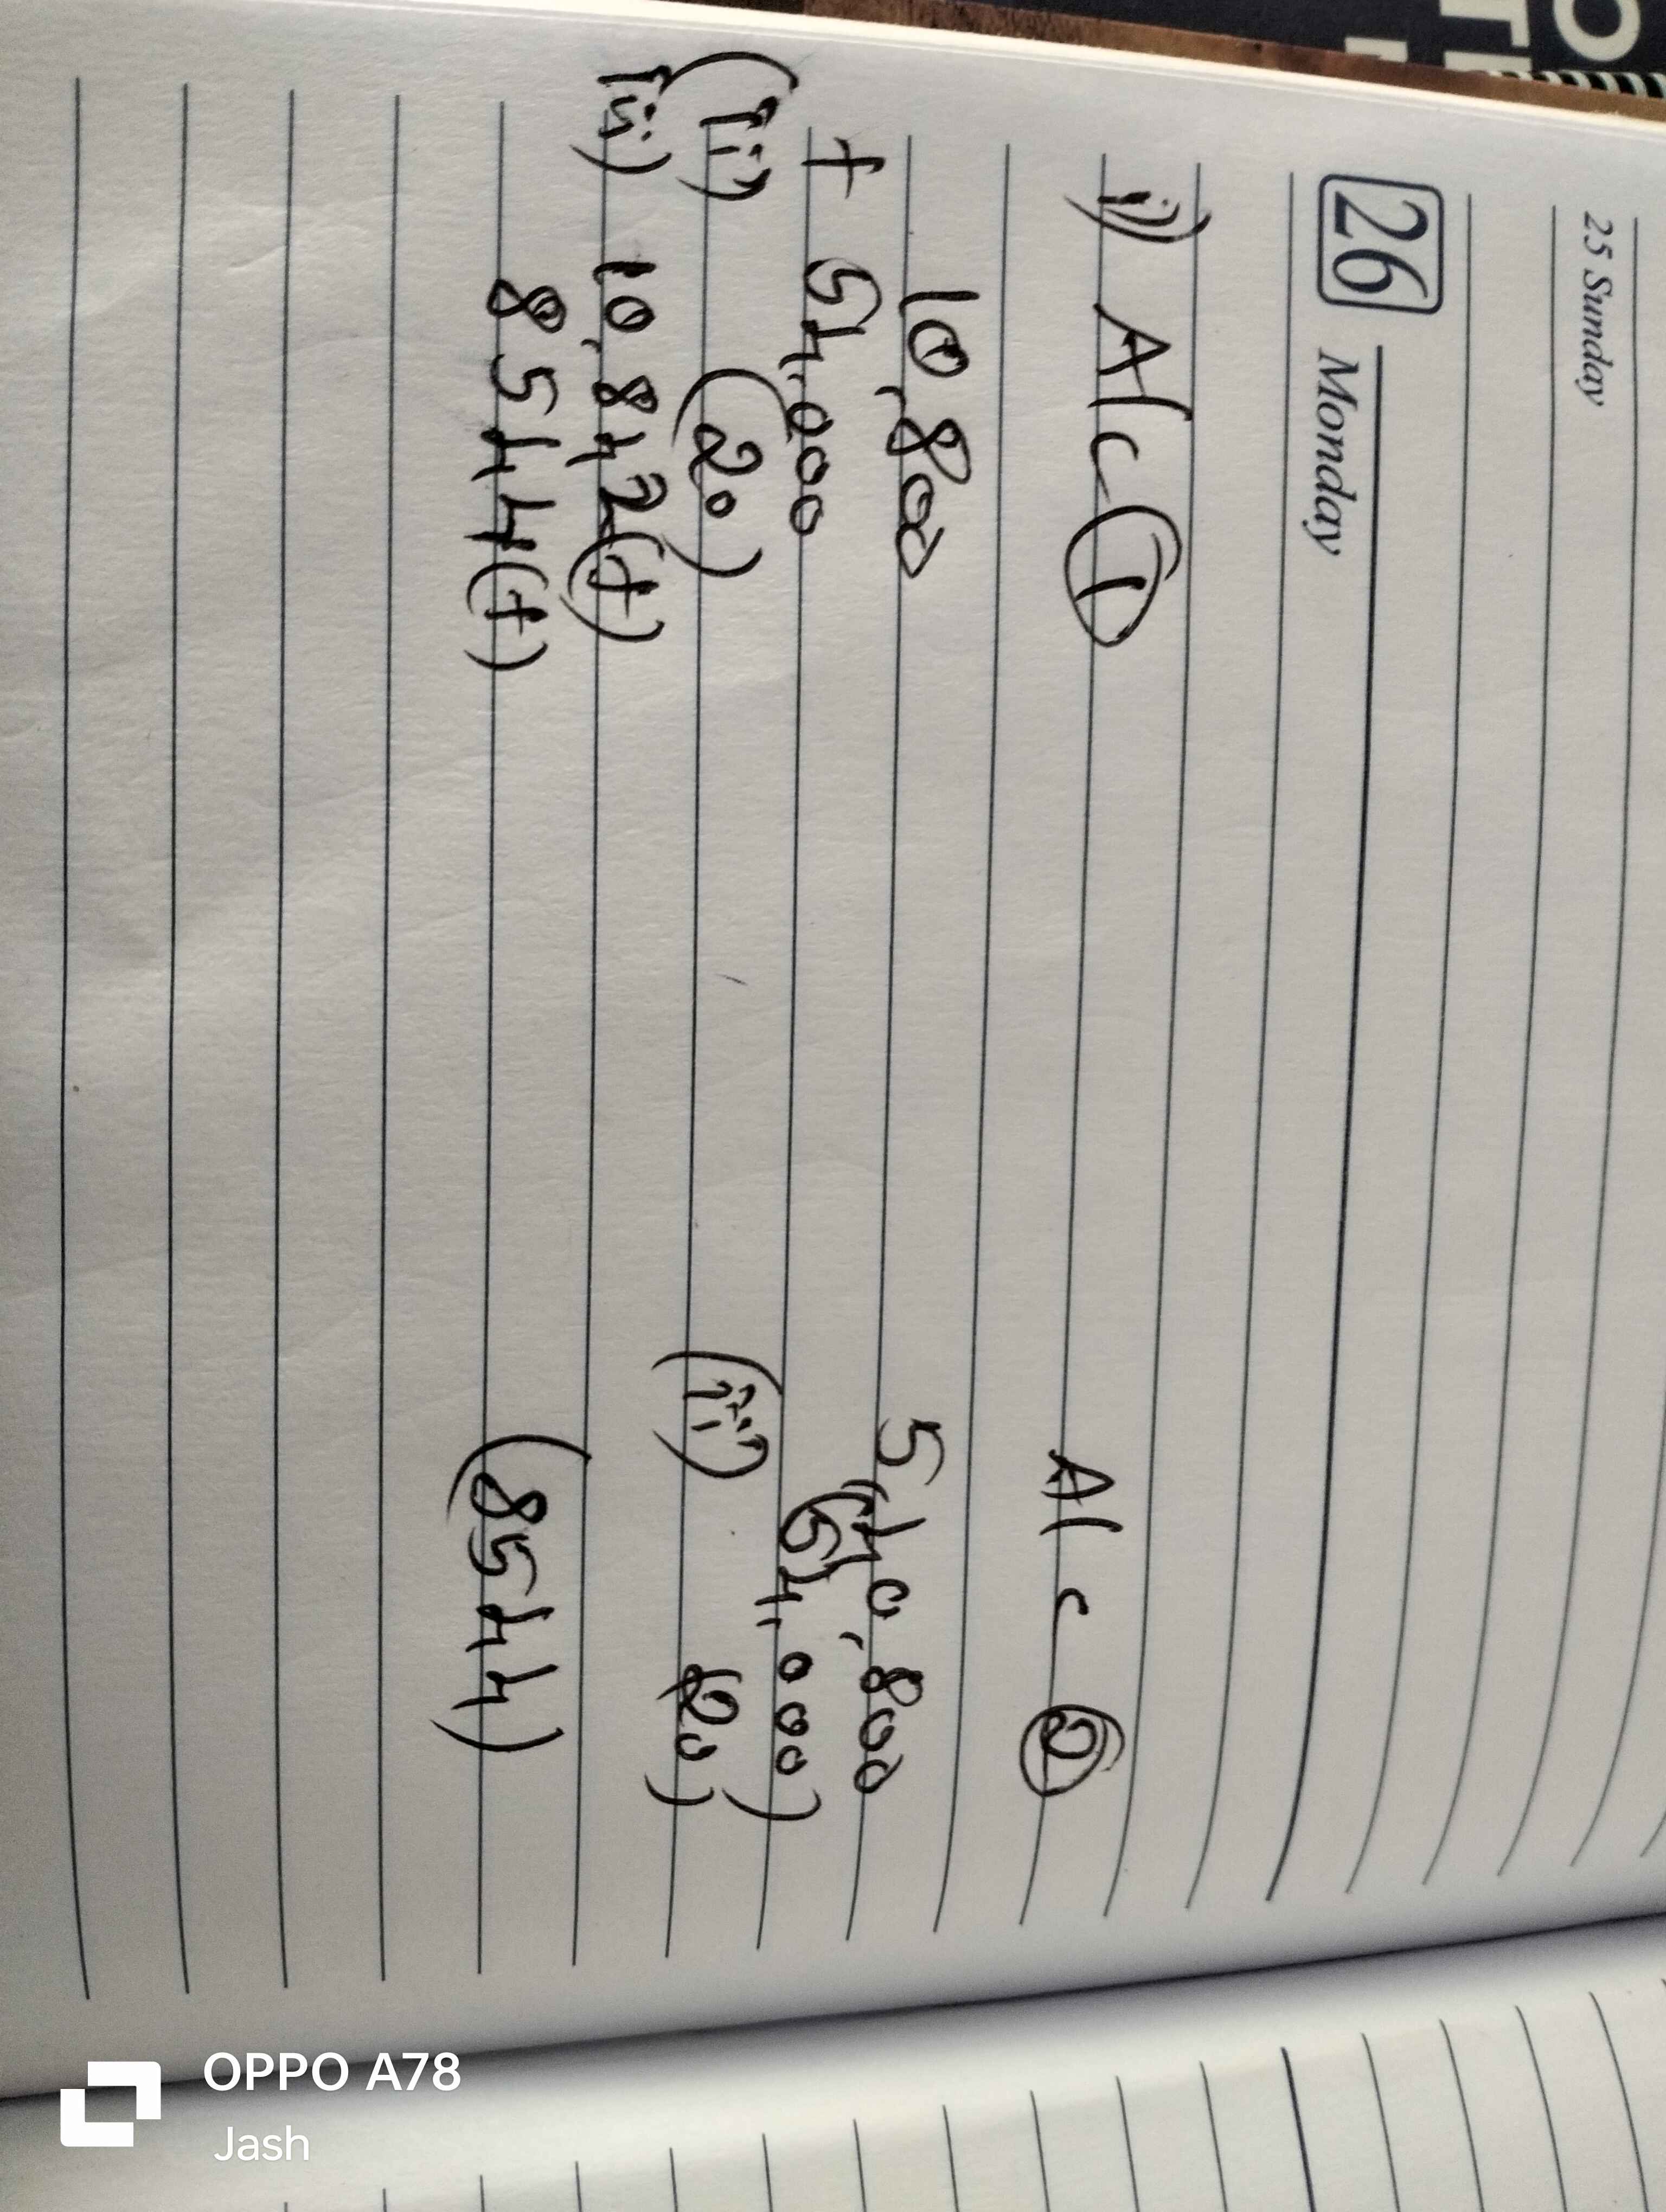 25 Sunday
26 Monday
i) A/c (1) A/c (2)
10,800 5,40,800
+ 54,000 (54,000)
(ii) (20) (iii) (20)
iii) 10,842 (+)
8544 (+) (8544)
OPPO A78
Jash